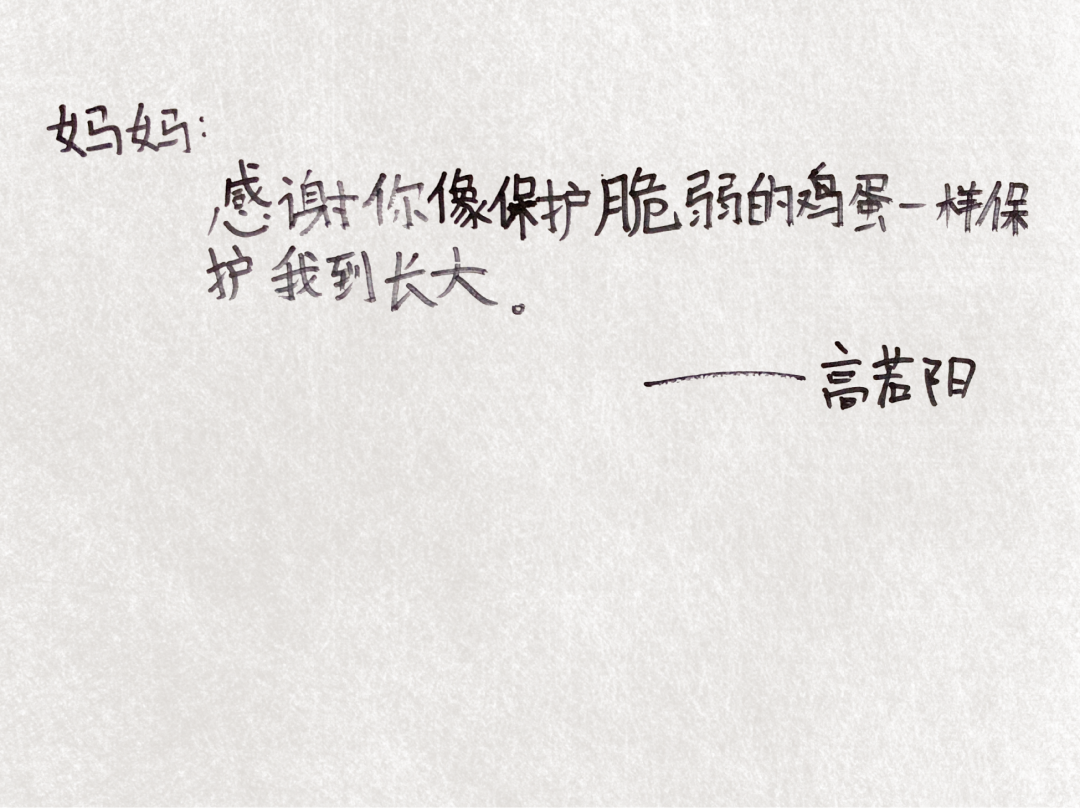 妈妈：
感谢你像保护脆弱的鸡蛋一样保
护我到长大。
——高若阳